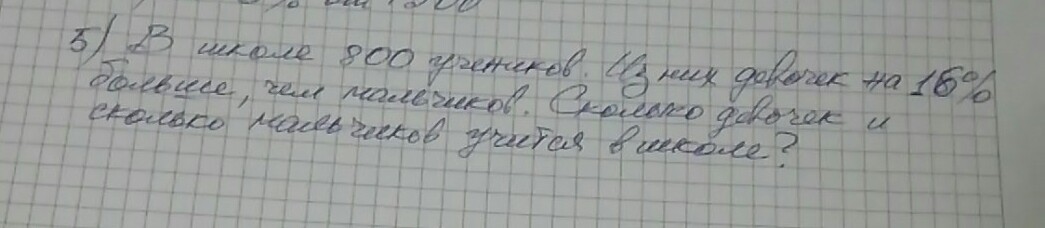 5) В школе 800 учеников. Из них девочек на 16%
больше, чем мальчиков. Сколько девочек и
сколько мальчиков учится в школе?